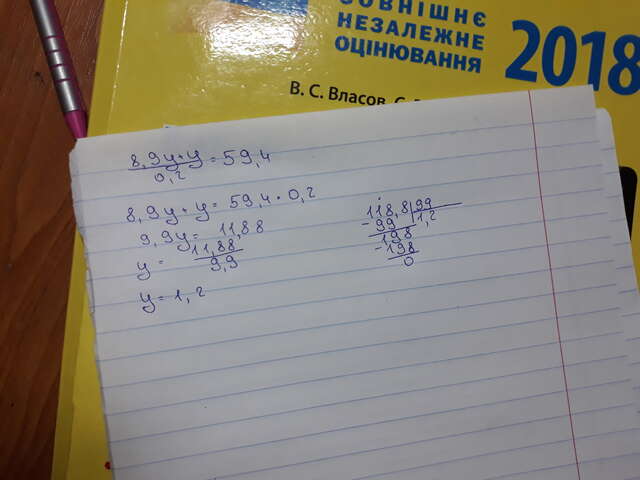 ЗОВНІШНЄ
НЕЗАЛЕЖНЕ
ОЦІНЮВАННЯ
2018
В. С. Власов, С.
8,9y+y/0,2 = 59,4
8,9y+y = 59,4 · 0,2
9,9y = 11,88
y = 11,88/9,9
y = 1,2
118,8 | 99
- 99 | 1,2
198
- 198
0